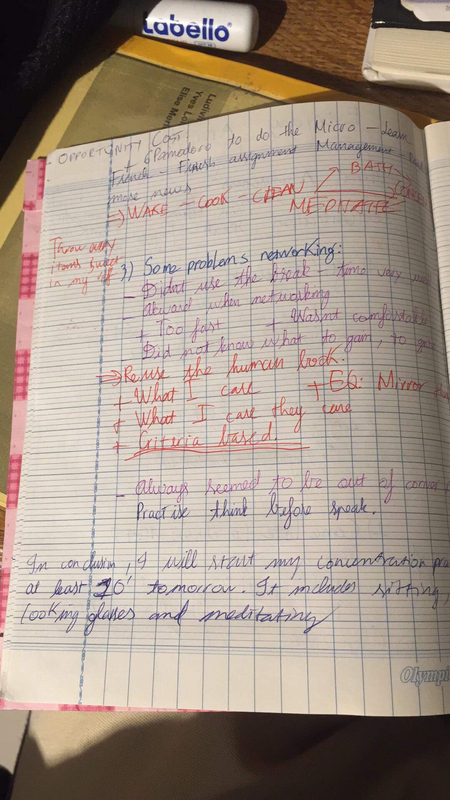 Labello
Ludiv
Yves L
Elise Mer
OPPORTUNITY COST
+ 6 Pomodoro to do the Micro - Lear
French - Finish assignment Management
more news
BATH
=> WAKE - COOK - CLEAN
MEDITATE
Throw away
items
in my
3) Some problems networking:
- Didnt use the break time very
- Akward when networking
+ Too fast + Wasnt comfortab
- Did not know what to gain, to
=> Re-use the human book:
+ What I care + EQ: Mirror
+ What I care they care
+ Criteria based.
- Always seemed to be out of conver
Practise think before speak.
In conclusion, I will start my concentration pra
at least 20' tomorrow. It includes sitting,
looking glasses and meditating
Olympi